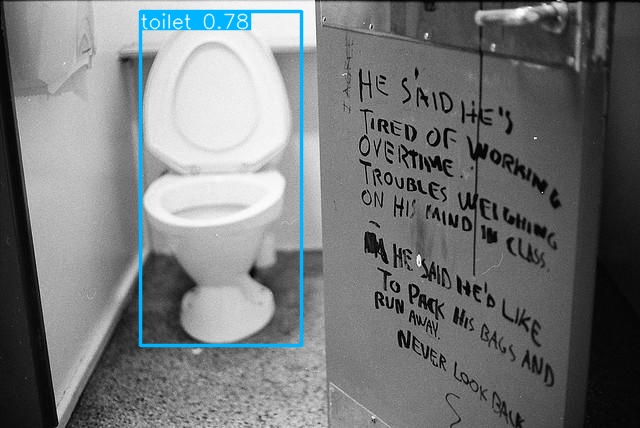 toilet 0.78
HE SAID HE'S
TIRED OF WORKING
OVERTIME.
TROUBLES WEIGHING
ON HIS MIND IN CLASS.
HE SAID HE'D LIKE
TO PACK HIS BAGS AND
RUN AWAY.
NEVER LOOK BACK